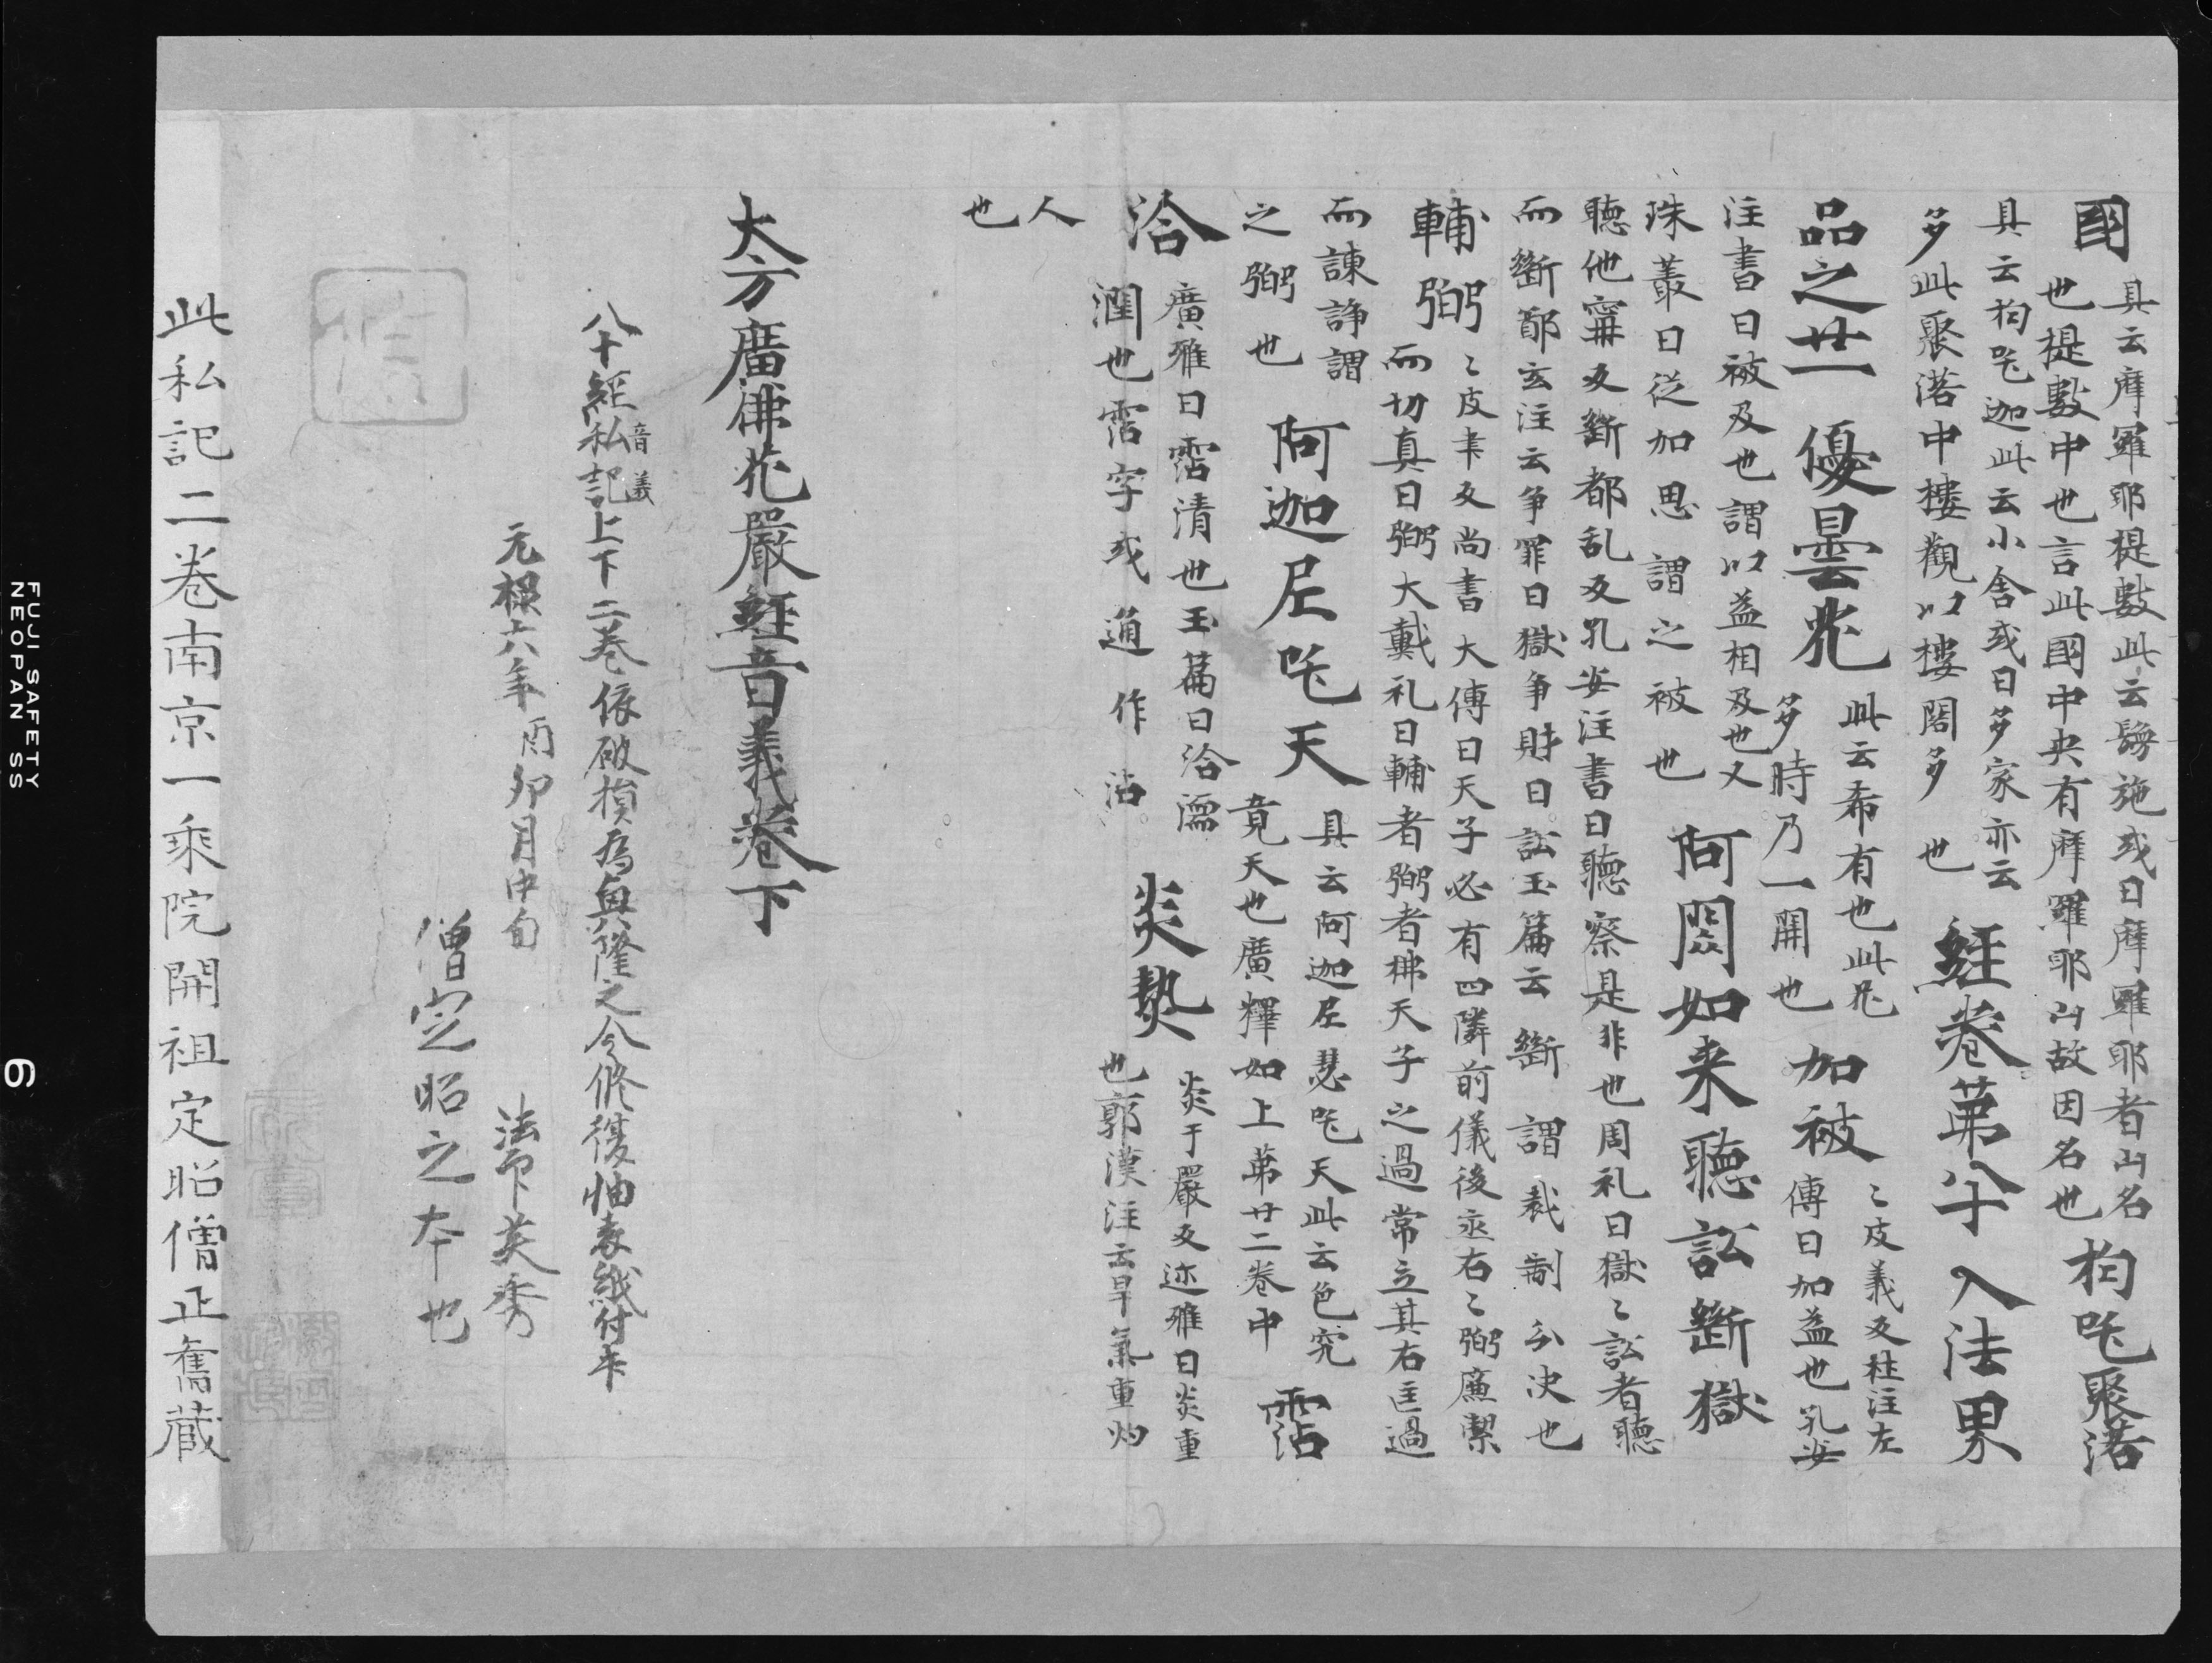 國 具云摩羅耶提數此云鬘施或曰摩羅耶者山名
也提數中也言此國中央有摩羅耶山故因名也 拘吒聚落
具云拘吒迦此云小舍或曰多家亦云
多此聚落中樓觀以樓閣多也 經卷第八十 入法界
品之廿一 優曇花 此云希有也此花
多時乃一開也 加被 〻皮義反杜注左
傳曰加益也孔安
注書曰被及也謂以益相及也又
珠叢曰從加恩謂之被也 阿閦如来 聽訟斷獄
聽他寧反斷都乱反孔安注書曰聽察是非也周礼曰獄〻訟者聽
而斷鄭玄注云争罪曰獄争財曰訟玉篇云斷謂裁制分决也
輔弼 〻皮筆反尚書大傳曰天子必有四隣前儀後丞右〻弼廉潔
而切真曰弼大戴礼曰輔者弼者拂天子之過常立其右匡過
而諫諍謂
之弼也 阿迦尼吒天 具云阿迦尼瑟吒天此云色究
竟天也廣釋如上第廿二卷中 霑
洽 廣雅曰霑清也玉篇曰洽濡
潤也霑字或通作沾 炎熱 炎于嚴反迩雅曰炎重
也郭漢注云旱氣重灼
人
也
大方廣佛花嚴經音義卷下
八十經私記音義上下二巻依破損為興隆之令修復軸表紙付畢
元禄六年酉卯月中旬 法印英秀
僧定昭之本也
此私記二巻南京一乘院開祖定昭僧正舊藏
FUJI SAFETY
NEOPAN SS
6